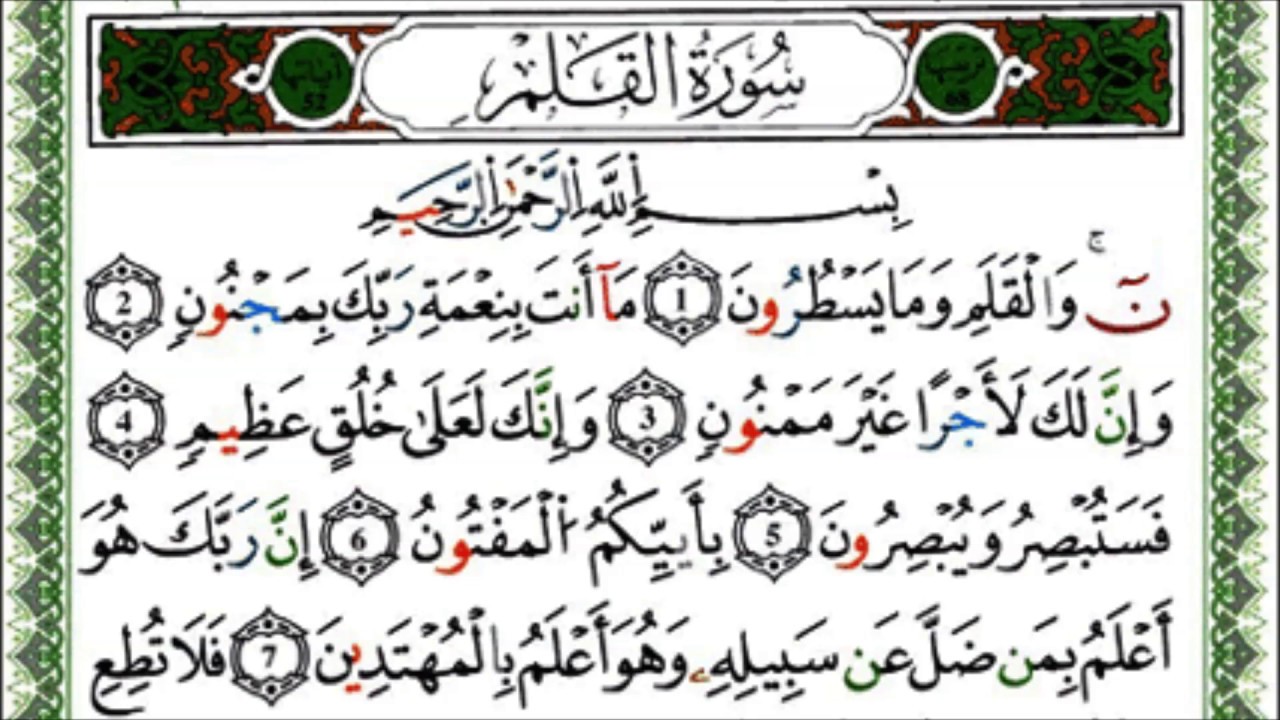 سُورَةُ القَلَمِ
52
68
بِسْمِ اللَّهِ الرَّحْمَٰنِ الرَّحِيمِ
نٓ ۚ وَالْقَلَمِ وَمَا يَسْطُرُونَ 1 مَآ أَنتَ بِنِعْمَةِ رَبِّكَ بِمَجْنُونٍ 2
وَإِنَّ لَكَ لَأَجْرًا غَيْرَ مَمْنُونٍ 3 وَإِنَّكَ لَعَلَىٰ خُلُقٍ عَظِيمٍ 4
فَسَتُبْصِرُ وَيُبْصِرُونَ 5 بِأَييِّكُمُ الْمَفْتُونُ 6 إِنَّ رَبَّكَ هُوَ
أَعْلَمُ بِمَن ضَلَّ عَن سَبِيلِهِۦ وَهُوَ أَعْلَمُ بِالْمُهْتَدِينَ 7 فَلَا تُطِعِ